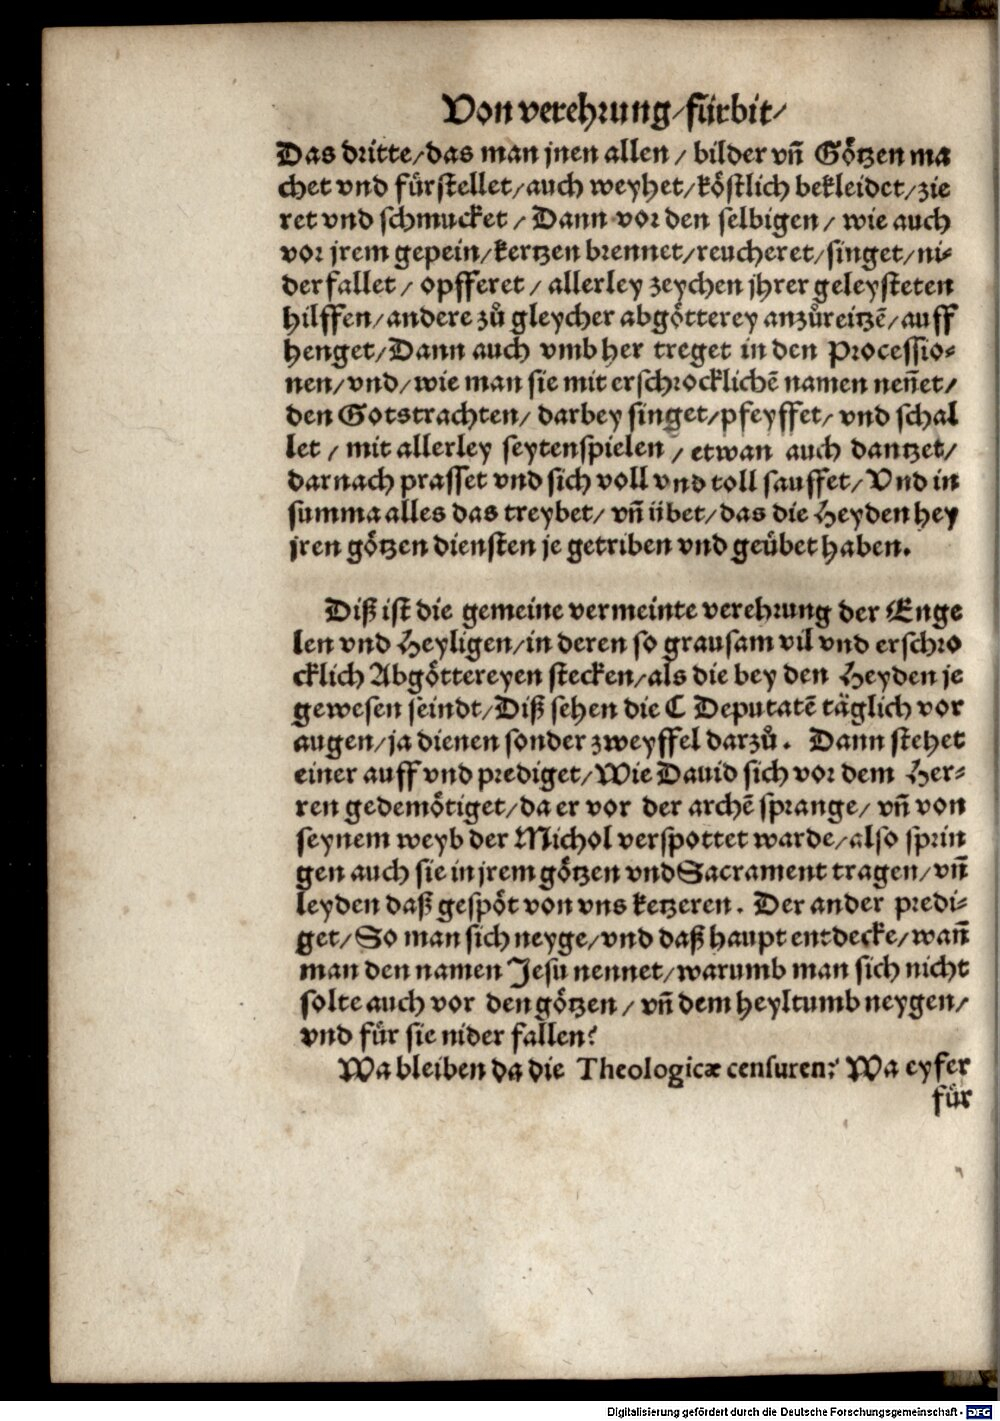 Von verehrung/fürbit/
Das dritte/das man jnen allen / bilder vñ Götzen ma
chet vnd fürstellet/auch weyhet/köstlich bekleidet/zie
ret vnd schmucket / Dann vor den selbigen / wie auch
vor jrem gepein/kertzen brennet/reucheret/singet/ni-
derfallet / opfferet / allerley zeychen jhrer geleysteten
hilffen/andere zů gleycher abgötterey anzůreitzē/auff
henget/Dann auch vmbher treget in den Processio-
nen/vnd/wie man sie mit erschrocklichē namen neñet/
den Gotstrachten/ darbey singet/pfeyffet/ vnd schal
let / mit allerley seytenspielen / etwan auch dantzet/
darnach prasset vnd sich voll vnd toll sauffet/ Vnd in
summa alles das treybet/ vñ übet/das die Heyden hey
jren götzen diensten je getriben vnd geübet haben.
Diß ist die gemeine vermeinte verehrung der Enge
len vnd Heyligen/in deren so grausam vil vnd erschro
cklich Abgöttereyen stecken/als die bey den Heyden je
gewesen seindt/Diß sehen die C Deputatē täglich vor
augen/ja dienen sonder zweyffel darzů. Dann stehet
einer auff vnd prediget/Wie Dauid sich vor dem Her-
ren gedemötiget/da er vor der archē sprange/ vñ von
seynem weyb der Michol verspottet warde/also sprin
gen auch sie in jrem götzen vnd Sacrament tragen/vñ
leyden daß gespöt von vns ketzeren. Der ander predi-
get/So man sich neyge/vnd daß haupt entdecke/wañ
man den namen Jesu nennet/warumb man sich nicht
solte auch vor den götzen / vñ dem heyltumb neygen/
vnd für sie nider fallen?
Wa bleiben da die Theologicæ censuren? Wa eyfer
für
Digitalisierung gefördert durch die Deutsche Forschungsgemeinschaft - DFG